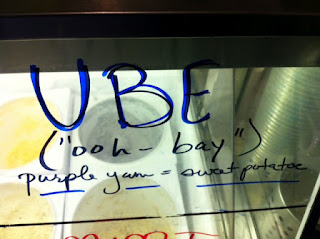 UBE
("ooh - bay")
purple yam = sweet potatoe